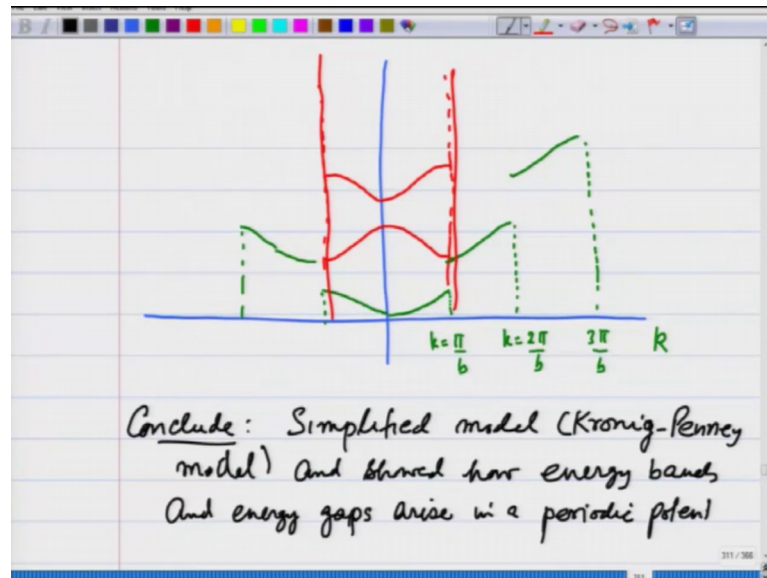 B I
k = π/b k = 2π/b 3π/b k
Conclude : Simplified model (Kronig-Penney
model) and showed how energy bands
and energy gaps arise in a periodic potent
311 / 366